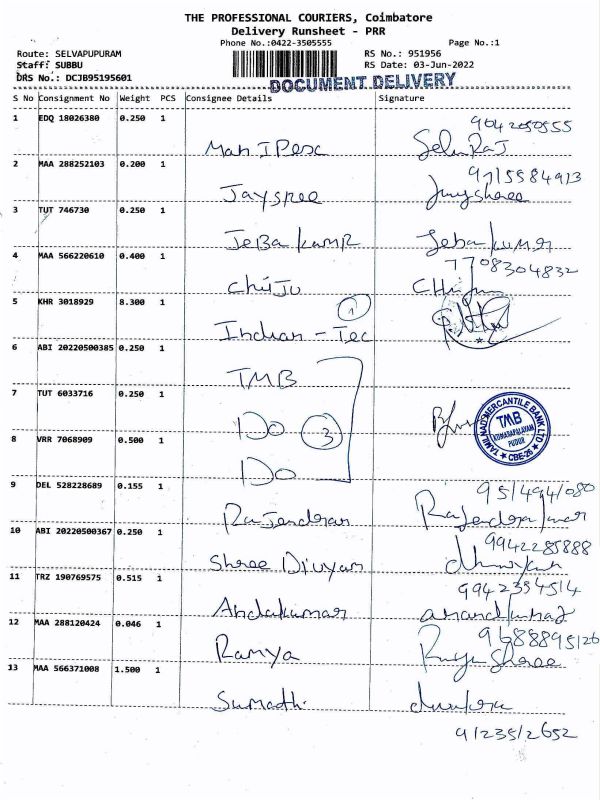 THE PROFESSIONAL COURIERS, Coimbatore
Delivery Runsheet - PRR
Phone No.:0422-3505555 Page No.:1
Route: SELVAPUPURAM RS No.: 951956
Staff: SUBBU RS Date: 03-Jun-2022
DRS No.: DCJB95195601
DOCUMENT DELIVERY
S No Consignment No Weight PCS Consignee Details Signature
1 EDQ 18026380 0.250 1
2 MAA 288252103 0.200 1
9715584913
Jaysree
3 TUT 746730 0.250 1
JeBa kumR Jeba kumar
4 MAA 566220610 0.400 1
7708304832
Chiju
5 KHR 3018929 8.300 1
1
Indian - Tec
6 ABI 20220500385 0.250 1
TMB
7 TUT 6033716 0.250 1
Do 3
TAMILNAD MERCANTILE BANK LTD
TMB
PUDUR
CBE-26
8 VRR 7068909 0.500 1
Do
9 DEL 528228689 0.155 1
9514941080
Rajendran
10 ABI 20220500367 0.250 1
9942285888
Shree Divyam
11 TRZ 190769575 0.515 1
9942354514
12 MAA 288120424 0.046 1
9688895126
Ramya
13 MAA 566371008 1.500 1
Sumathi
9123512652